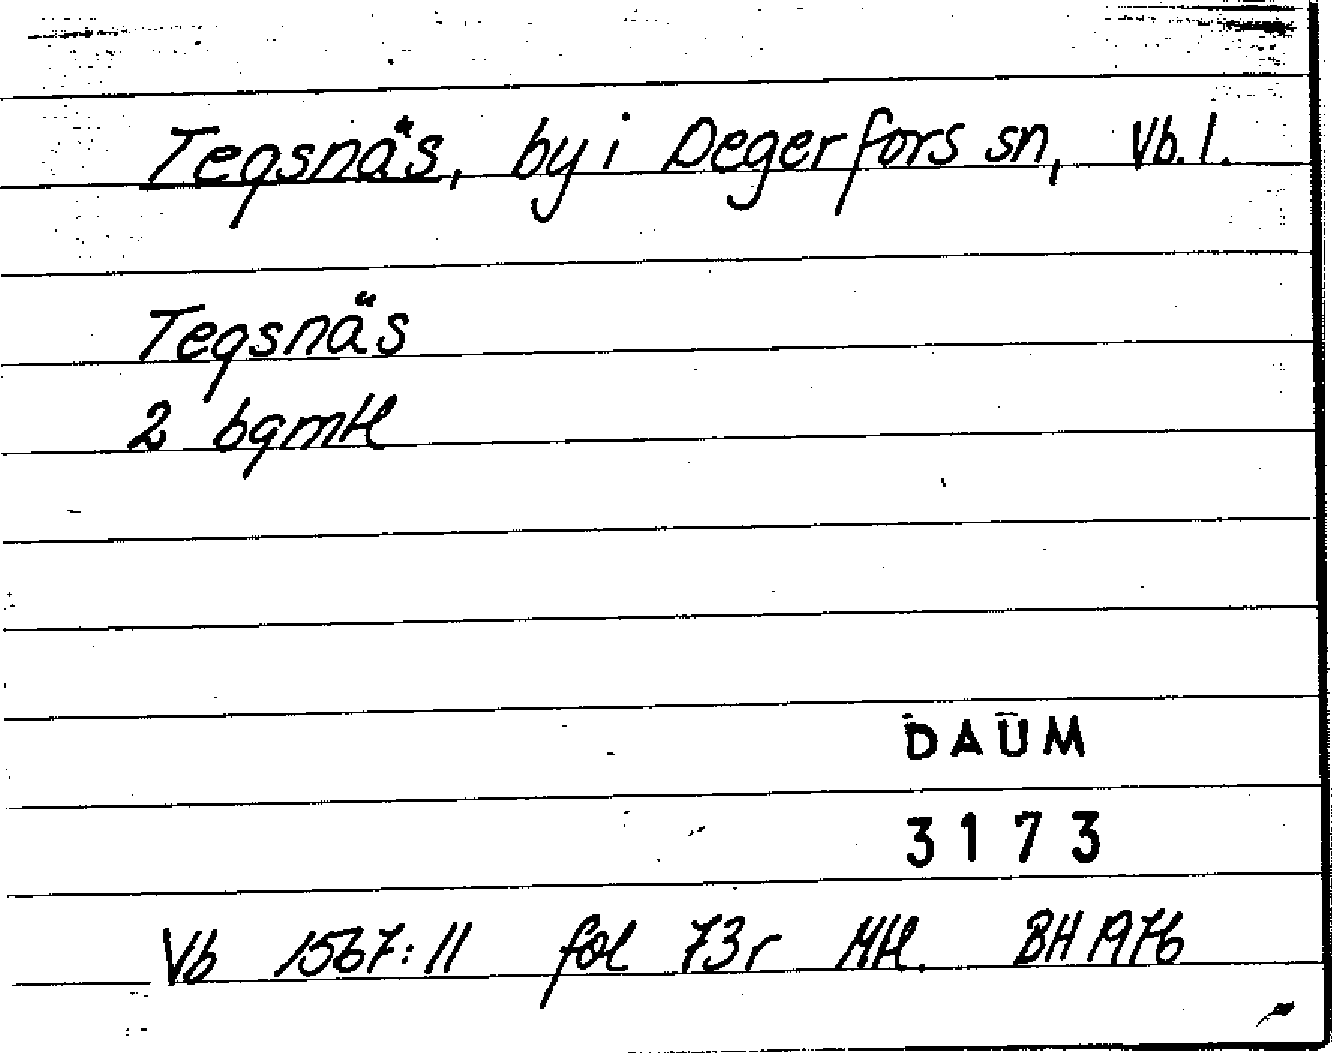 Tegsnäs, by i Degerfors sn, Vb. l.
Tegsnäs
2 bgmtl
DAUM
3173
Vb 1567:11 fol 73r Mtl. BH 1976